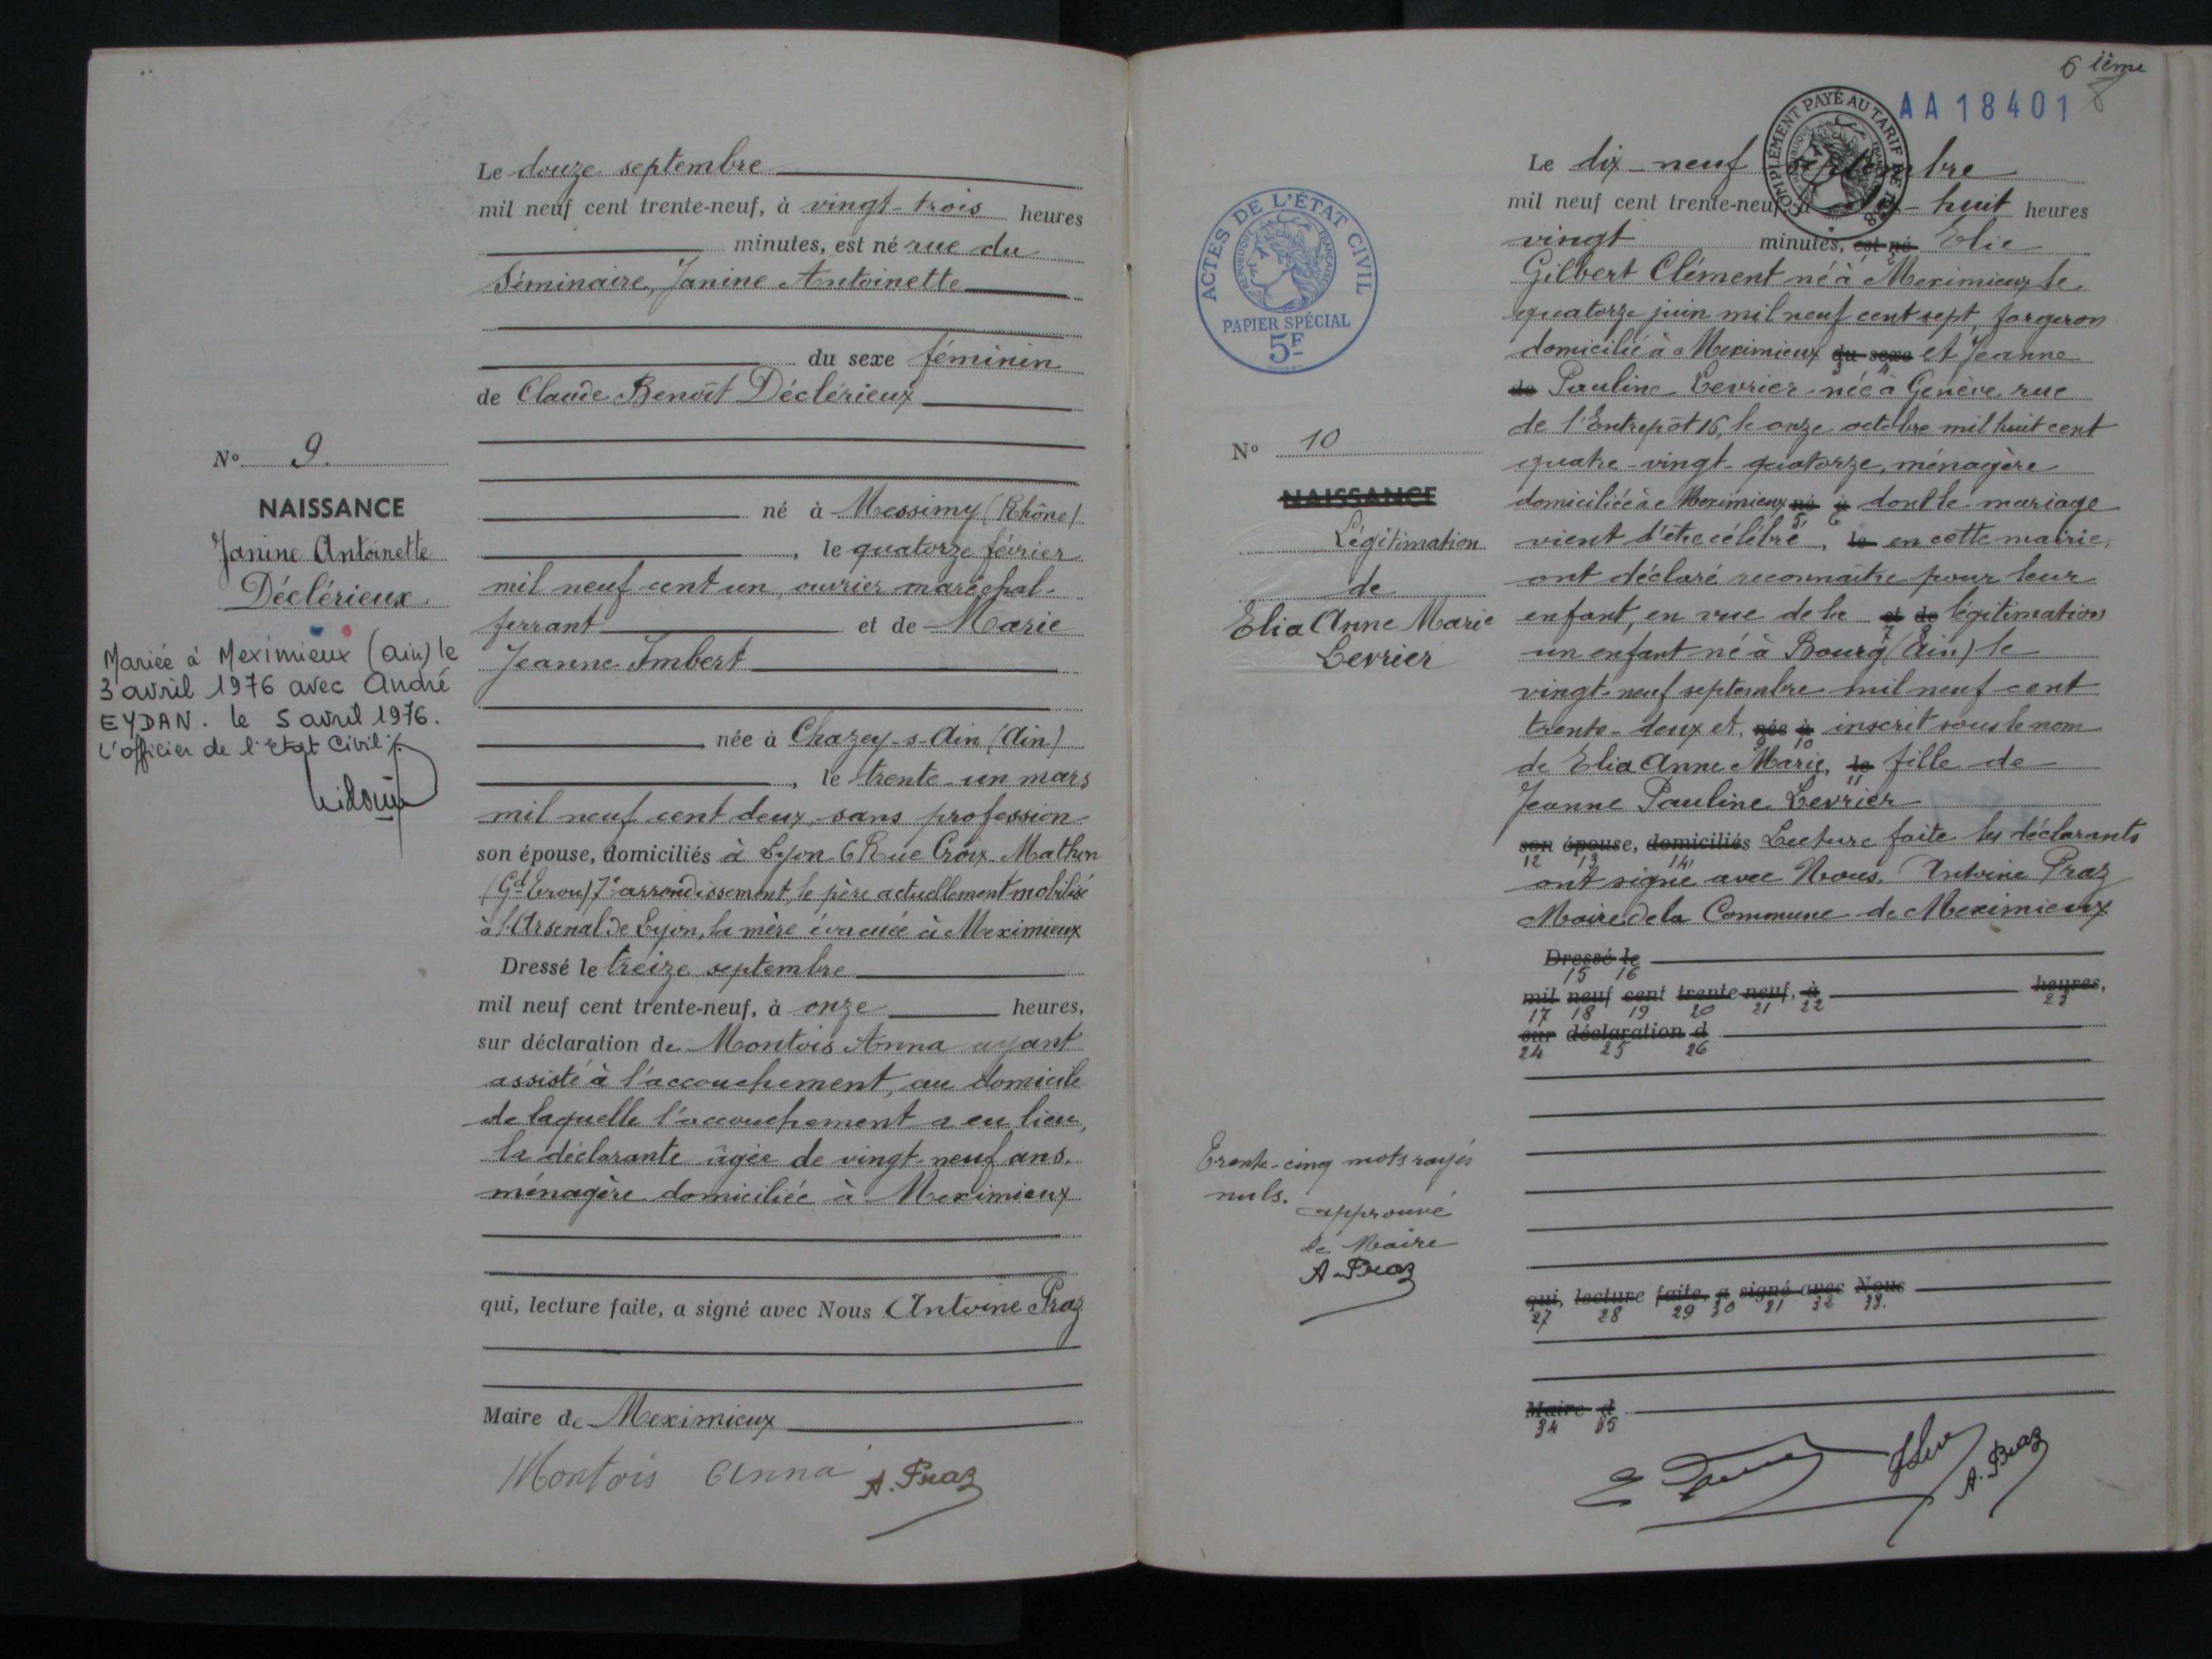 Le douze septembre
mil neuf cent trente-neuf, à vingt-trois heures
minutes, est né rue du
Séminaire, Janine Antoinette
du sexe féminin
de Claude Benoît Déclérieux
né à Messimy (Rhône)
, le quatorze février
mil neuf cent un, ouvrier maréchal-
ferrant et de Marie
Jeanne Imbert
née à Chazey-s-Ain (Ain)
, le trente-un mars
mil neuf cent deux, sans profession
son épouse, domiciliés à Lyon 6 Rue Croix-Mathon
(Gd Trou) 7e arrondissement, le père actuellement mobilisé
à l'Arsenal de Lyon, la mère évacuée à Meximieux
Dressé le treize septembre
mil neuf cent trente-neuf, à onze heures,
sur déclaration de Montois Anna ayant
assisté à l'accouchement, au domicile
de laquelle l'accouchement a eu lieu,
la déclarante âgée de vingt-neuf ans,
ménagère domiciliée à Meximieux
qui, lecture faite, a signé avec Nous Antoine Praz
Maire de Meximieux
Montois Anna A. Praz
No 9
NAISSANCE
Janine Antoinette
Déclérieux
Mariée à Meximieux (ain) le
3 avril 1976 avec André
EYDAN. le 5 avril 1976.
L'officier de l'Etat Civil
6 ième
AA18401
COMPLÉMENT PAYÉ AU TARIF DE
ACTES DE L'ÉTAT CIVIL
RÉPUBLIQUE FRANÇAISE
PAPIER SPÉCIAL
5F
Le dix-neuf septembre
mil neuf cent trente-neuf, à dix-huit heures
vingt minutes, est né Elie
1 2
Gilbert Clément né à Meximieux le
quatorze juin mil neuf cent sept, forgeron
domicilié à Meximieux du sexe et Jeanne
3 4
de Pauline Levrier née à Genève rue
de l'Entrepôt 16, le onze octobre mil huit cent
quatre-vingt-quatorze, ménagère
domiciliée à Meximieux né à dont le mariage
5 6
vient d'être célébré, le en cette mairie,
ont déclaré reconnaître pour leur
enfant, en vue de la et de légitimation
7 8
un enfant né à Bourg (Ain) le
vingt-neuf septembre mil neuf cent
trente-deux et, née à inscrit sous le nom
9 10
de Elia Anne Marie, le fille de
11
Jeanne Pauline Levrier
son épouse, domiciliés Lecture faite les déclarants
12 13 14
ont signé avec Nous, Antoine Praz
Maire de la Commune de Meximieux
Dressé le
15 16
mil neuf cent trente-neuf, à heures,
17 18 19 20 21 22 23
sur déclaration d
24 25 26
qui, lecture faite, a signé avec Nous
27 28 29 30 31 32 33.
Maire d
34 35
A. Praz
No 10
NAISSANCE
Légitimation
de
Elia Anne Marie
Levrier
Trente-cinq mots rayés
nuls.
approuvé
Le Maire
A. Praz